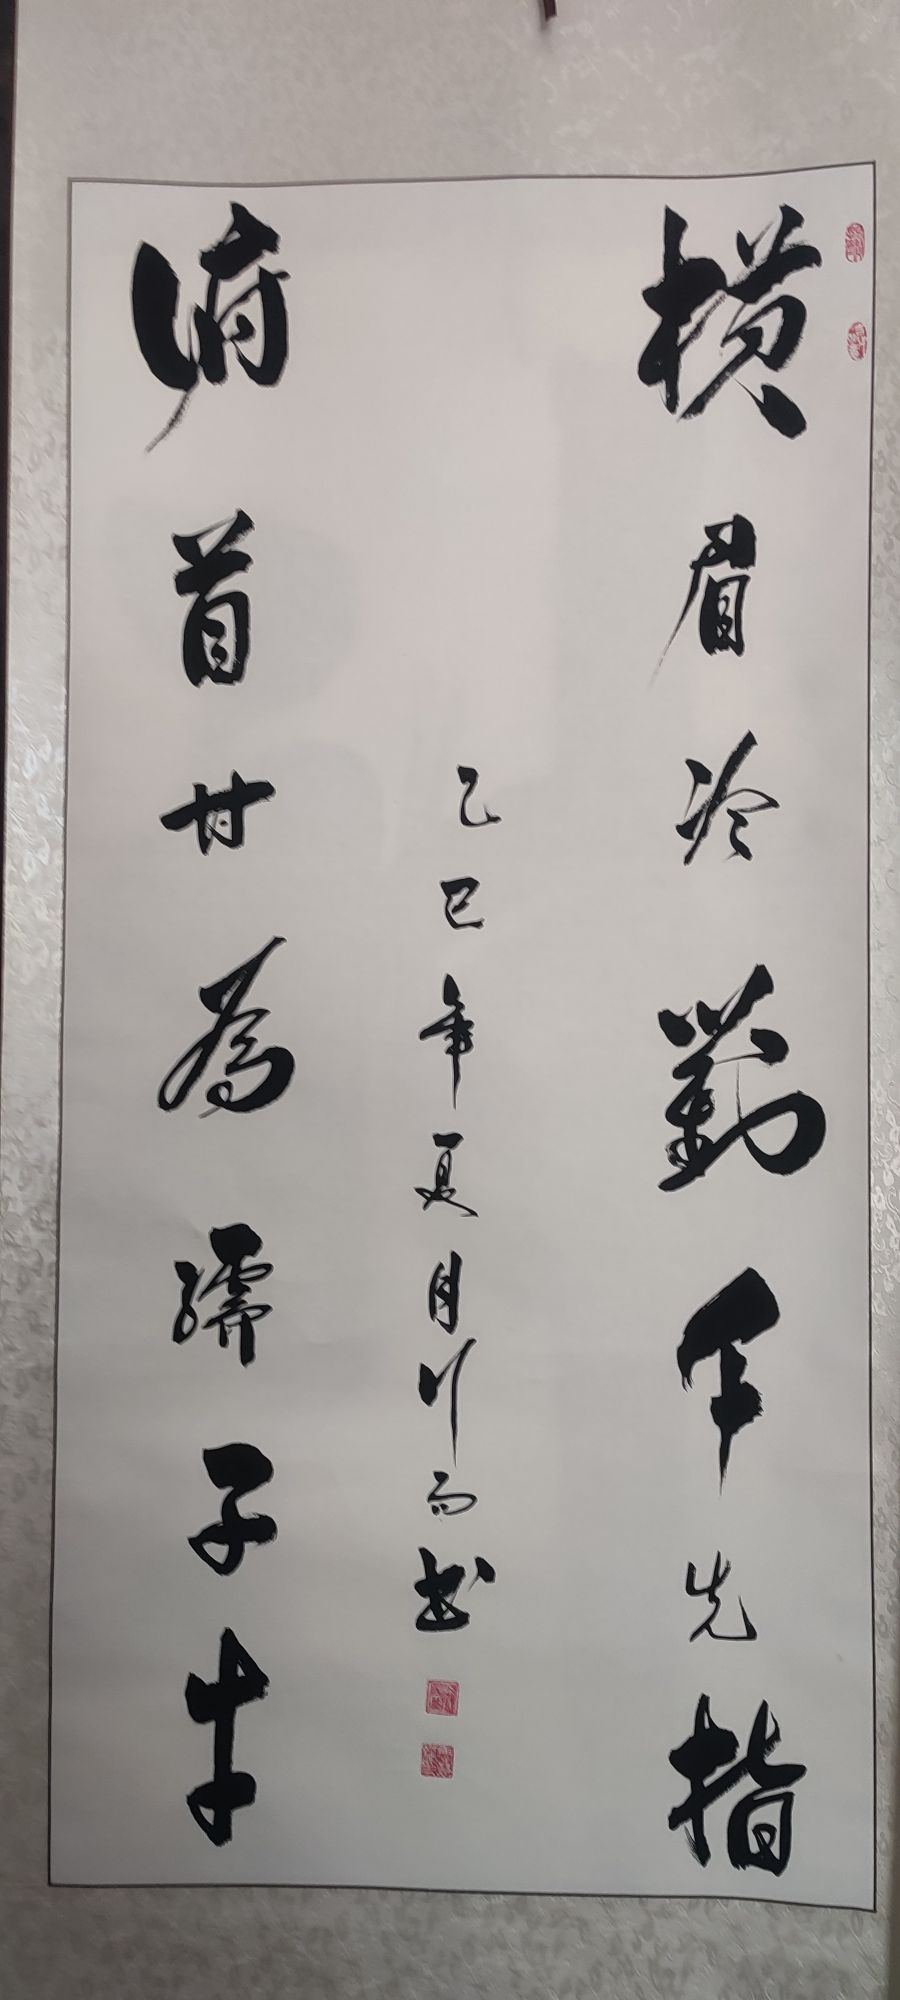 橫眉冷對千夫指
俯首甘為孺子牛
乙巳年夏月川而书